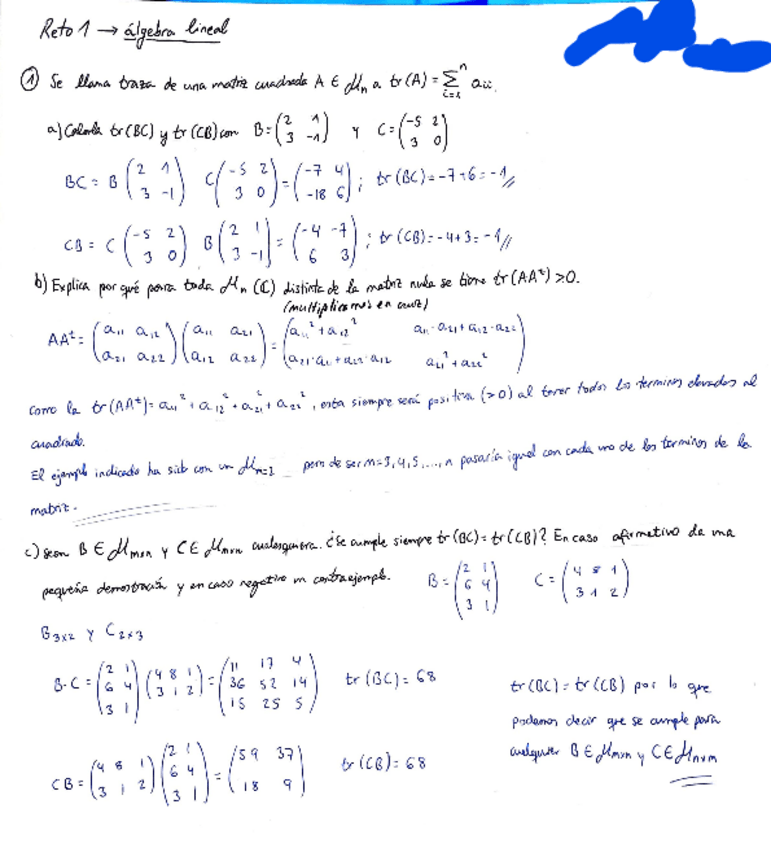 Reto 1 → álgebra lineal
① Se llama traza de una matriz cuadrada A ∈ Mₙ a tr(A) = Σⁿᵢ₌₁ aᵢᵢ.
a) Calcula tr(BC) y tr(CB) con B = (2 1; 3 -1) y C = (-5 2; 3 0)
BC = B (2 1; 3 -1) C (-5 2; 3 0) = (-7 4; -18 6); tr(BC) = -7+6 = -1//
CB = C (-5 2; 3 0) B (2 1; 3 -1) = (-4 -7; 6 3); tr(CB) = -4+3 = -1//
b) Explica por qué para toda Mₙ(C) distinta de la matriz nula se tiene tr(AAᵗ) > 0.
(multiplicamos en cruz)
AAᵗ = (a₁₁ a₁₂; a₂₁ a₂₂) (a₁₁ a₂₁; a₁₂ a₂₂) = (a₁₁² + a₁₂² a₁₁·a₂₁ + a₁₂·a₂₂; a₂₁·a₁₁ + a₂₂·a₁₂ a₂₁² + a₂₂²)
como la tr(AAᵗ) = a₁₁² + a₁₂² + a₂₁² + a₂₂², esta siempre será positiva (>0) al tener todos los terminos elevados al
cuadrado.
El ejemplo indicado ha sido con un Mₙ₌₂ pero de ser n=3,4,5,...,n pasaría igual con cada uno de los terminos de la
matriz.
c) sean B ∈ Mₘₓₙ y C ∈ Mₙₓₘ cualesquiera. ¿Se cumple siempre tr(BC) = tr(CB)? En caso afirmativo da una
pequeña demostración y en caso negativo un contraejemplo. B = (2 1; 6 4; 3 1) C = (4 8 1; 3 1 2)
B₃ₓ₂ y C₂ₓ₃
B·C = (2 1; 6 4; 3 1) (4 8 1; 3 1 2) = (11 17 4; 36 52 14; 15 25 5) tr(BC) = 68
CB = (4 8 1; 3 1 2) (2 1; 6 4; 3 1) = (59 37; 18 9) tr(CB) = 68
tr(BC) = tr(CB) por lo que
podemos decir que se cumple para
cualquier B ∈ Mₘₓₙ y C ∈ Mₙₓₘ